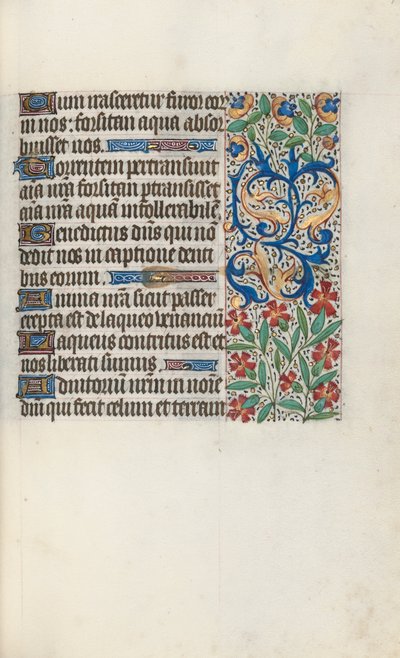 Cum irasceretur furor eor
in nos: forsitan aqua absor
buisset nos.
Torrentem pertransiuit
aīa nr̄a forsitan ptransisset
aīa nr̄a aquā intollerabilē.
Benedictus dn̄s qui nō
dedit nos in captione denti
bus eorum.
Anima nr̄a sicut passer
erepta est de laqueo venanciū
Laqueus contritus est et
nos liberati sumus.
Adiutoriū nr̄m in noīe
dn̄i qui fecit celum et terram